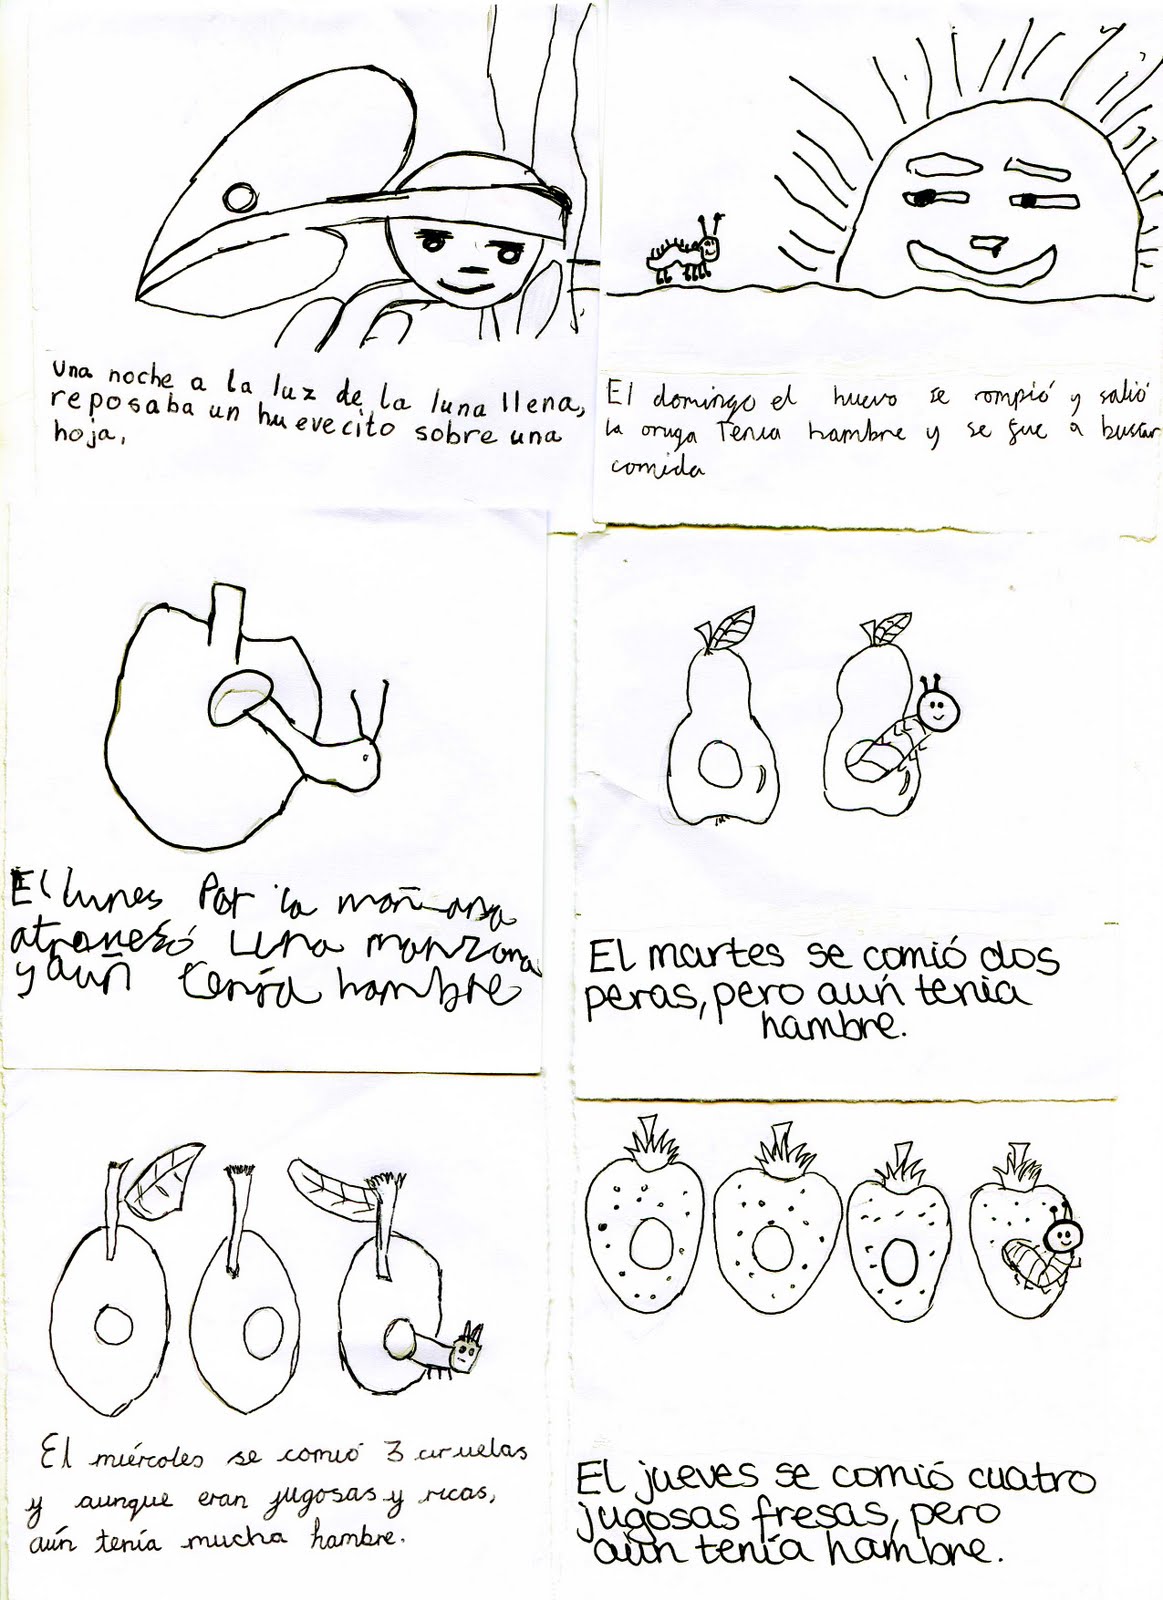 Una noche a la luz de la luna llena,
reposaba un huevecito sobre una
hoja,
El domingo el huevo se rompió y salió
la oruga Tenia hambre y se fue a buscar
comida
El lunes Por la mañana
atravesó una manzana
y aún tenía hambre
El martes se comió dos
peras, pero aún tenia
hambre.
El miércoles se comió 3 ciruelas
y aunque eran jugosas y ricas,
aún tenía mucha hambre.
El jueves se comió cuatro
jugosas fresas, pero
aún tenía hambre.